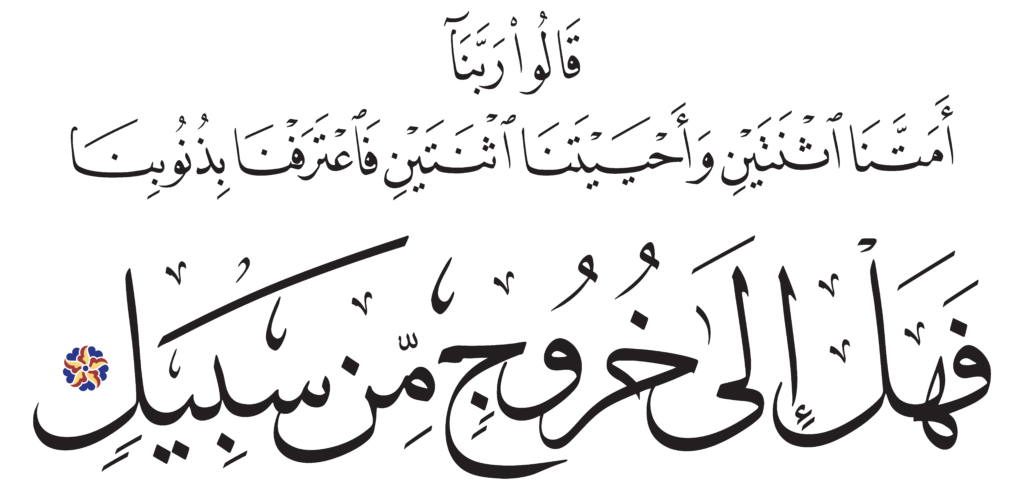 قَالُوا۟ رَبَّنَآ
أَمَتَّنَا ٱثْنَتَيْنِ وَأَحْيَيْتَنَا ٱثْنَتَيْنِ فَٱعْتَرَفْنَا بِذُنُوبِنَا
فَهَلْ إِلَىٰ خُرُوجٍ مِّن سَبِيلٍ